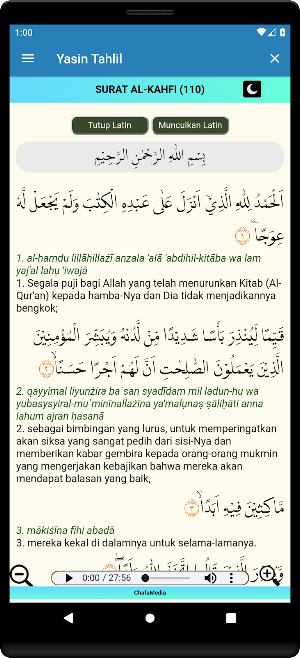 1:00
Yasin Tahlil
SURAT AL-KAHFI (110)
Tutup Latin
Munculkan Latin
بِسْمِ اللهِ الرَّحْمٰنِ الرَّحِيْمِ
اَلْحَمْدُ لِلّٰهِ الَّذِيْٓ اَنْزَلَ عَلٰى عَبْدِهِ الْكِتٰبَ وَلَمْ يَجْعَلْ لَّهٗ
عِوَجًا ۜ ١
1. al-ḥamdu lillāhillażī anzala 'alā 'abdihil-kitāba wa lam
yaj'al lahụ 'iwajā
1. Segala puji bagi Allah yang telah menurunkan Kitab (Al-
Qur'an) kepada hamba-Nya dan Dia tidak menjadikannya
bengkok;
قَيِّمًا لِّيُنْذِرَ بَأْسًا شَدِيْدًا مِّنْ لَّدُنْهُ وَيُبَشِّرَ الْمُؤْمِنِيْنَ
الَّذِيْنَ يَعْمَلُوْنَ الصّٰلِحٰتِ اَنَّ لَهُمْ اَجْرًا حَسَنًاۙ ٢
2. qayyimal liyunżira ba`san syadīdam mil ladun-hu wa
yubasysyiral-mu`minīnallażīna ya'malụnaṣ-ṣāliḥāti anna
lahum ajran ḥasanā
2. sebagai bimbingan yang lurus, untuk memperingatkan
akan siksa yang sangat pedih dari sisi-Nya dan
memberikan kabar gembira kepada orang-orang mukmin
yang mengerjakan kebajikan bahwa mereka akan
mendapat balasan yang baik,
مَّاكِثِيْنَ فِيْهِ اَبَدًاۙ ٣
3. mākiṡīna fīhi abadā
3. mereka kekal di dalamnya untuk selama-lamanya.
0:00 / 27:56
ChafaMedia